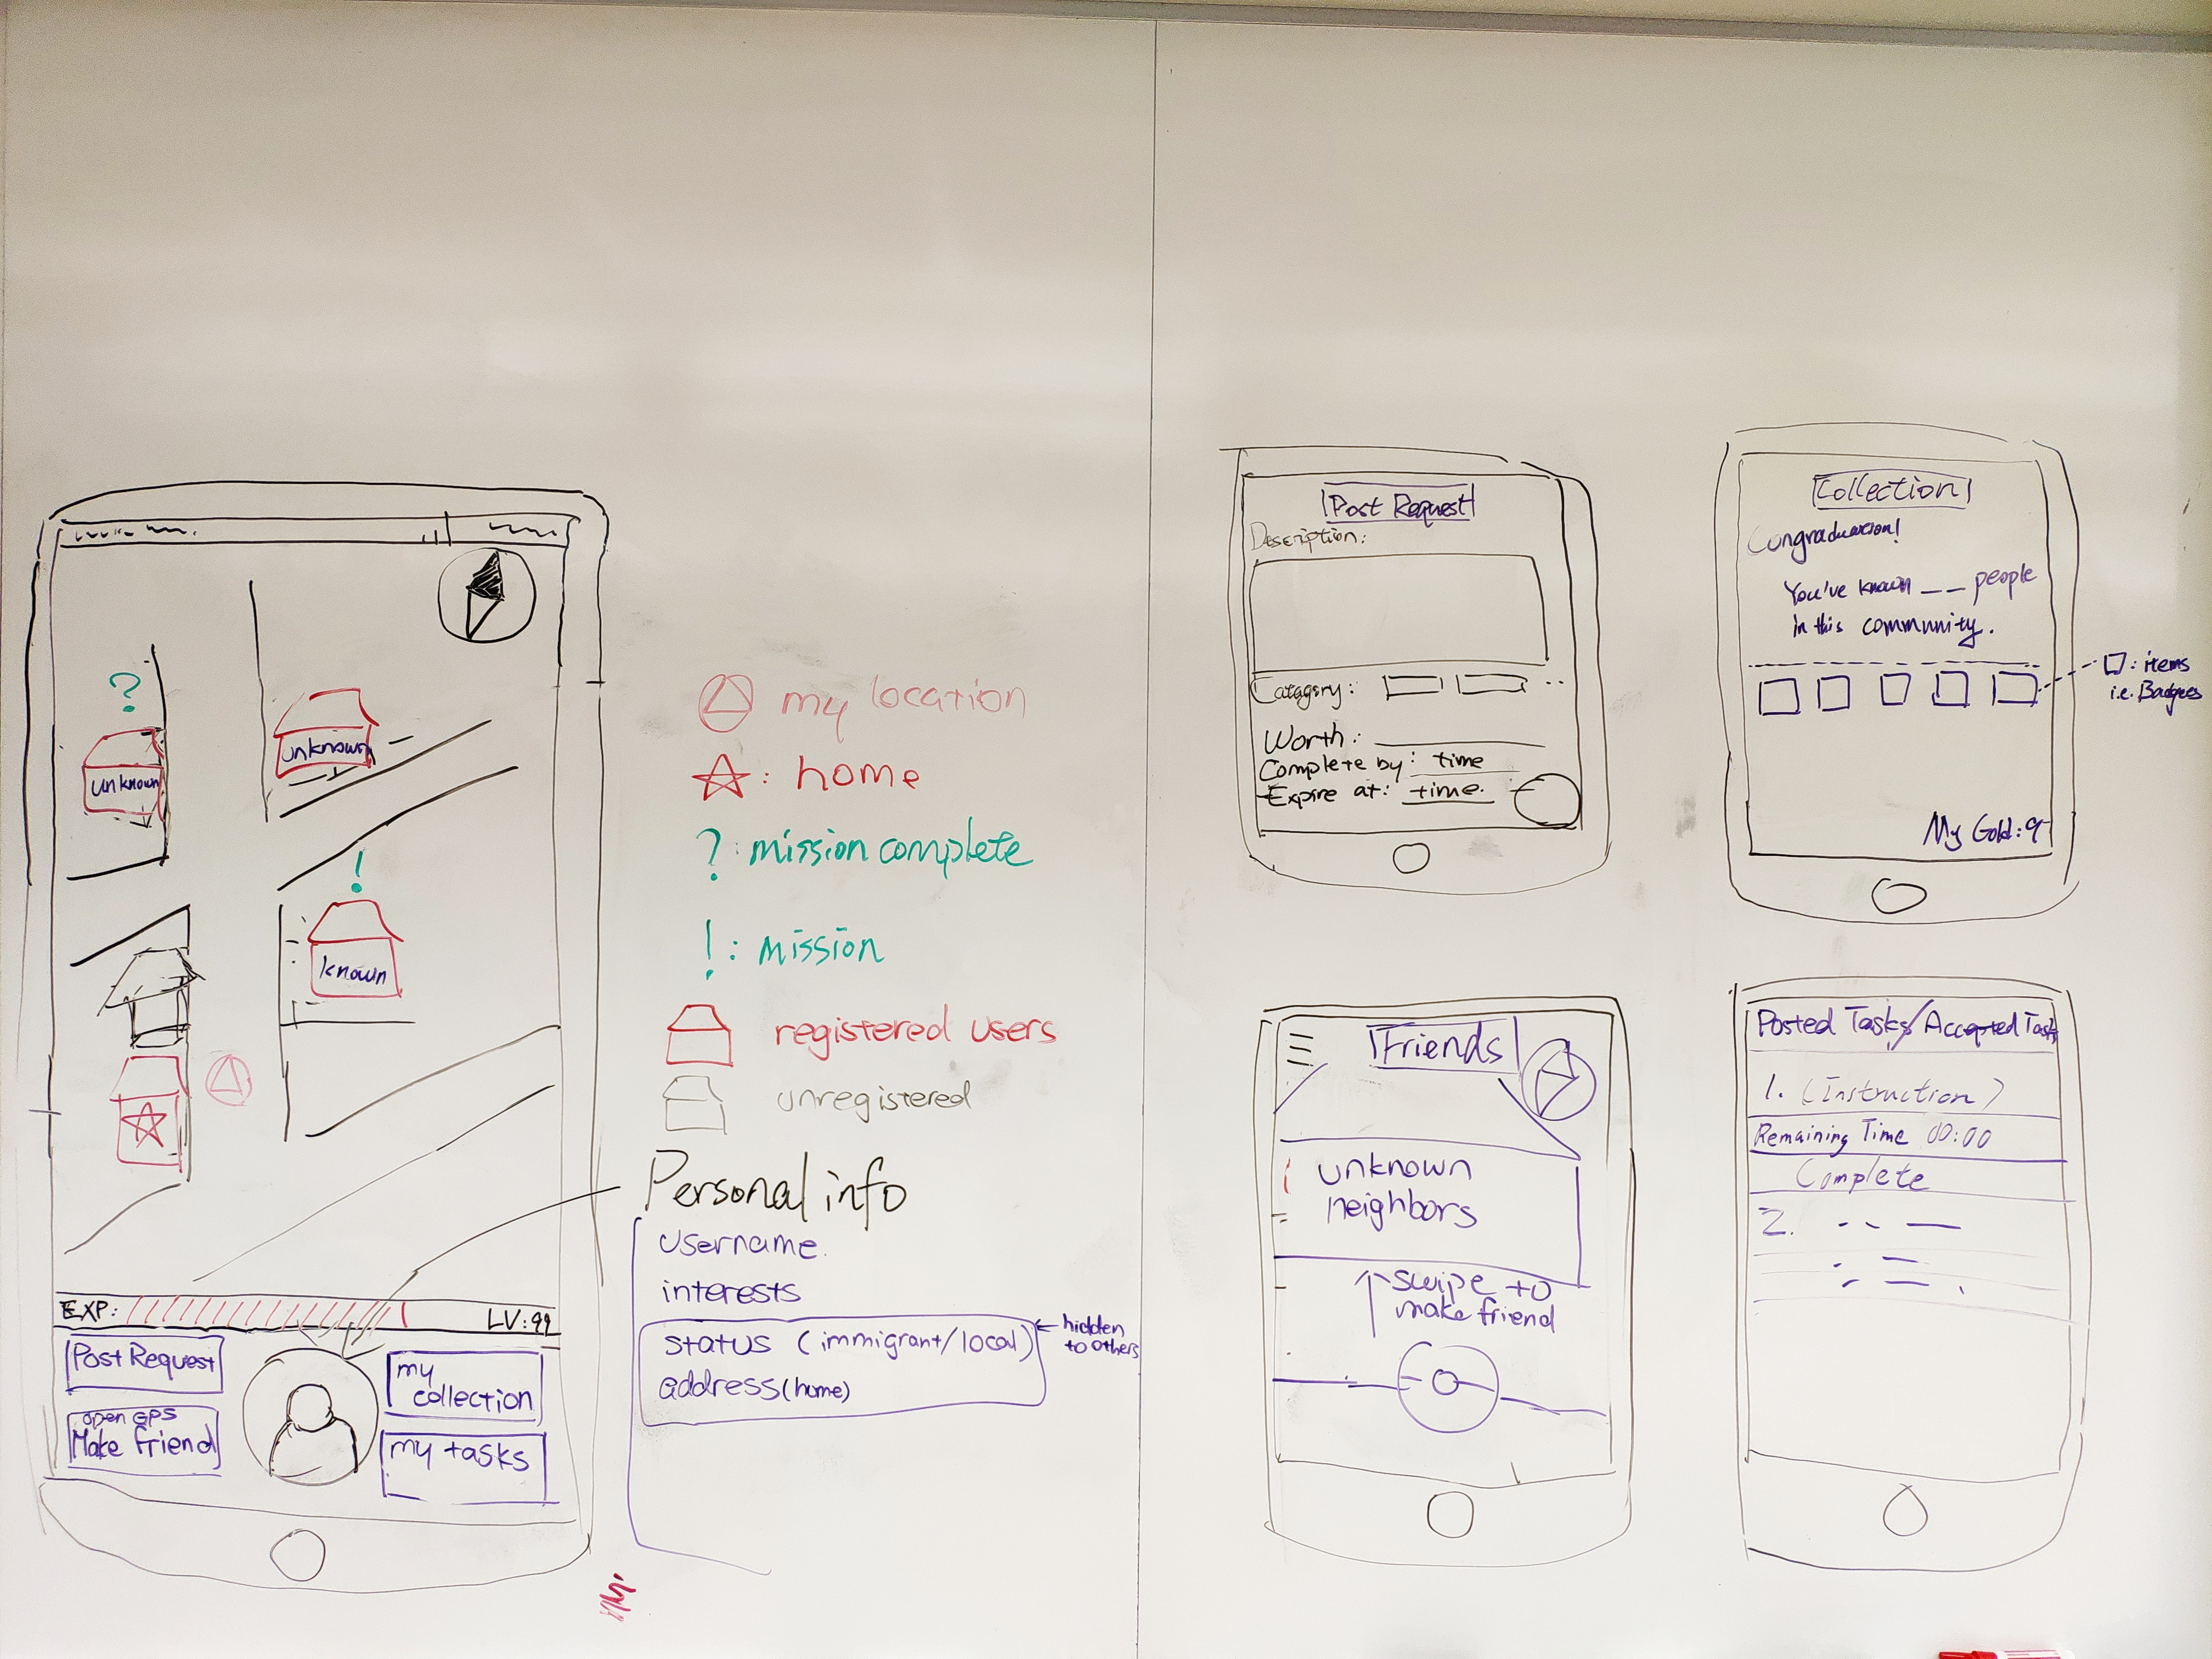 ?
unknown
unknown
!
known
EXP:
LV:99
Post Request
open GPS
Make friend
my
collection
my tasks
my location
: home
? : mission complete
! : mission
registered users
unregistered
Personal info
username
interests
status (immigrant/local)
address (home)
hidden
to others
Post Request
Description:
Catagory: ..
Worth:
Complete by: time
Expire at: time.
Collection
Congraduation!
You've known _ _ people
in this community.
: items
i.e. Badges
My Gold: 9
Friends
unknown
neighbors
swipe to
make friend
Posted Tasks/Accepted Task
1. (Instruction)
Remaining Time 00:00
Complete
2.